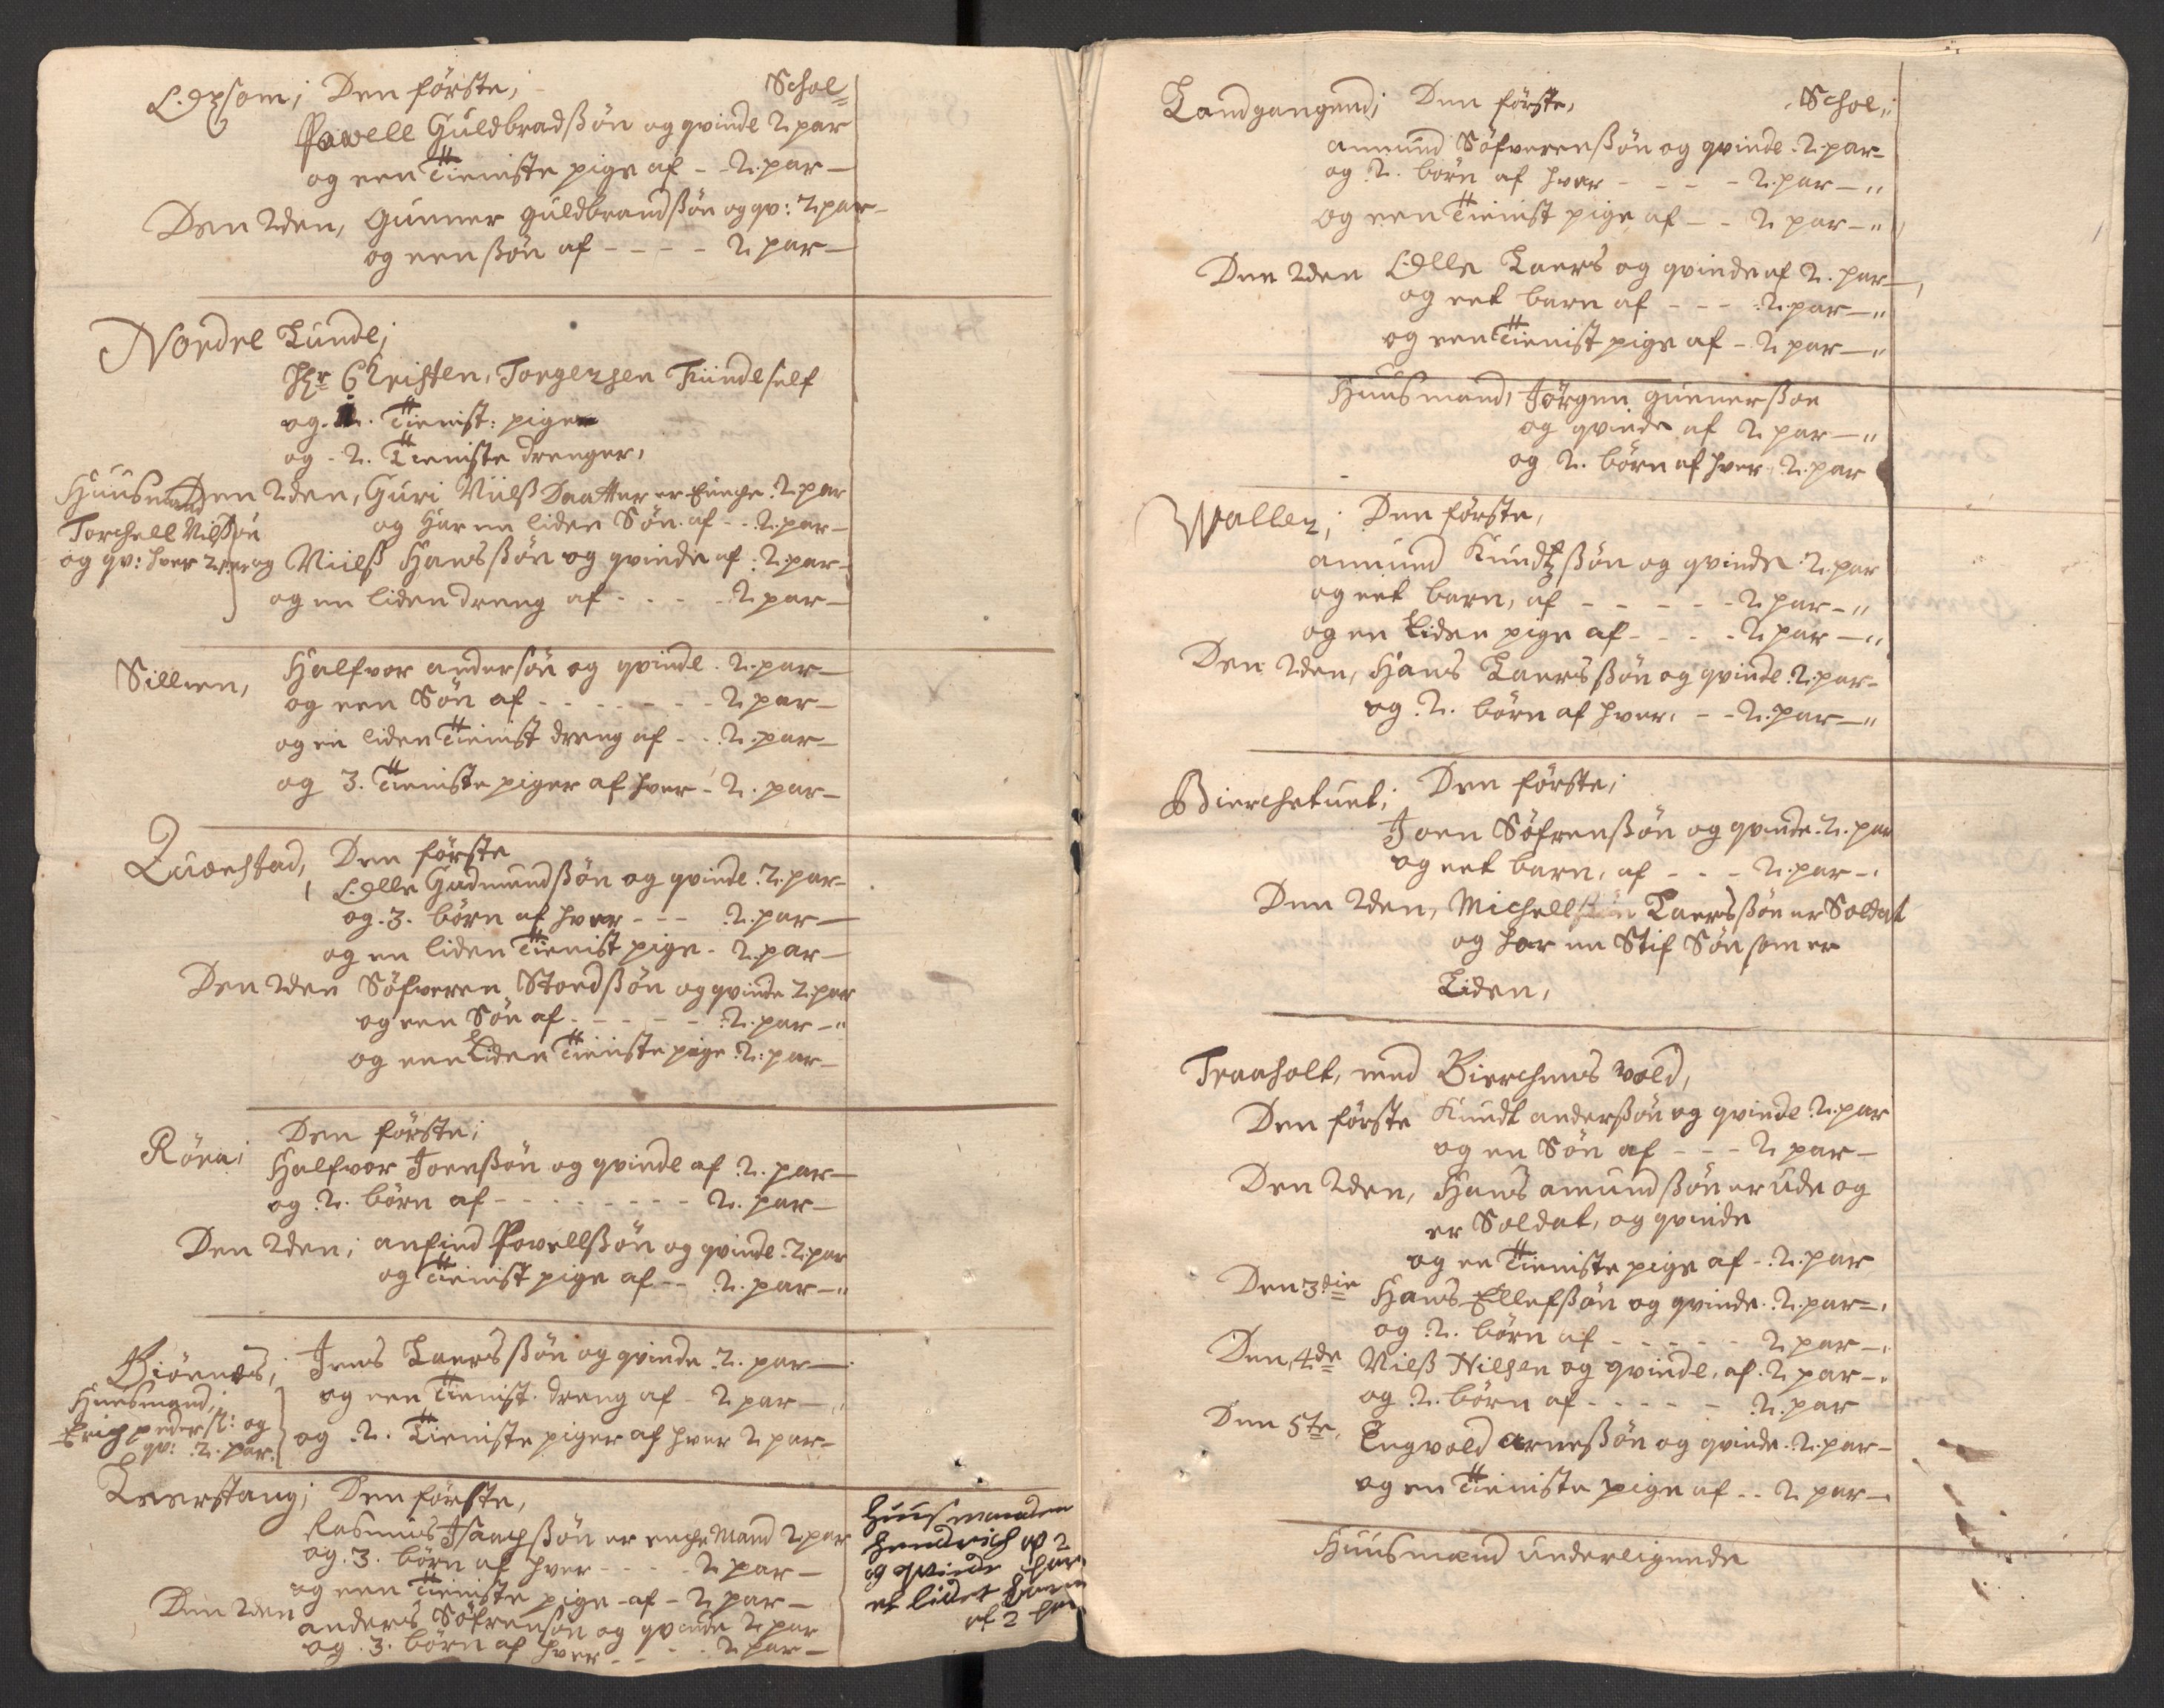 Den första; Schol=
Powell Guldbradßøn og qvinde 2 par
og een Tieniste pige af - - 2. par —
Den 2den, Gunner Guldbrandßøn og qv: 2 par -
og een ßøn af - - - - 2 par —
Nordre Lunde;
Hr Christen, Torgersen self
og . Tienist: pige
og - 2. Tieniste drenger,
Huusmand Den 2den, Guri Niilß Daatter er Enche 2 par
Torchell Nilßøn og Har en liden Søn af - - 2. par —
og qv: hver 2 par og Niilß Hansßøn og qvinde af 2. par —
og en liden dreng af - - - - 2 par —
Sillien, Halfvor andersøn og qvinde 2. par —
og een Søn af - - - - - - - 2 par —
og en liden Tienist dreng af - - 2. par —
og 3. Tieniste piger af hver - 2. par —
Quæstad, Den första
Olle Gudmundßøn og qvinde 2. par -
og . 3. børn af hver - - - 2. par —
og en liden Tienist pige - 2. par —
Den 2den Søfveren Stordßøn og qvinde 2 par
og een Søn af - - - - - 2. par — "
og een Liden Tieniste pige 2: par —
Den første;
Røen; Halfvor Joenßøn og qvinde af 2. par —
og 2. børn af - - - - - - - - 2. par —
Den 2den; anfind Powellßøn og qvinde 2. par
og Tienist pige af - - 2. par — "
Biørnes; Jens Laersßøn og qvinde 2. par —
Huusmand; og een Tienist dreng af - 2 par — "
Erich pederß: og og 2. Tieniste piger af hver 2 par -
qv: 2. par.
Leerstang; Den første,
Rasmus Isachßøn er enche Mand 2 par
og . 3. børn af hver - - - - 2 par —
og een Tieniste pige - af - 2 par —
Den 2den anders Søfrensøn og qvinde 2 par
og . 3. børn af hver - - - - 2 par —
Huusmanden
Hendrich af 2
og qvinde har
et lidet barn
af 2 par
Landgangend; Den første, Schoe,,
amund Søfverenßøn og qvinde 2. par -
og 2. børn af hver - - - - 2. par — "
og een Tienist pige af - - 2 par — "
Den 2den Olle Laers og qvinde af 2. par —
og eet barn af - - - 2. par — "
og een Tienist pige af - 2 par — "
Huusmand, Jörgen gunnerßøn
og qvinde af 2 par — "
og 2. børn af hver 2. par
Waller; Den første,
amund Knudtzßøn og qvinde 2. par
og eet barn, af - - - - - 2 par - "
og en Liden pige af - - - - 2 par — "
Den 2den, Hans Laersßøn og qvinde 2. par -
og . 2. børn af hver, - - 2. par — "
Bierchetuet; Den første;
Joen Søfrenßøn og qvinde 2. par
og eet barn, af - - - 2. par -
Den 2den, Michell Laersßøn er Soldat
og har en Stif Søn som er
Liden,
Traaholt, med Bierchens vold,
Den første Knudt anderßøn og qvinde 2. par
og en Søn af - - - 2 par —
Den 2den, Hans amundßøn er ude og
er Soldat, og qvinde
og en Tieniste pige af - 2. par
Den 3die Hans Ellefßøn og qvinde 2. par -
og 2. børn af - - - - - 2 par —
Den 4de Nielß Nilsen og qvinde, af 2 par —
og 2. børn af - - - - - 2. par
Den 5te, Engvold arneßøn og qvinde 2. par —
og en Tieniste pige af - - 2 par —
Huusmænd underligende